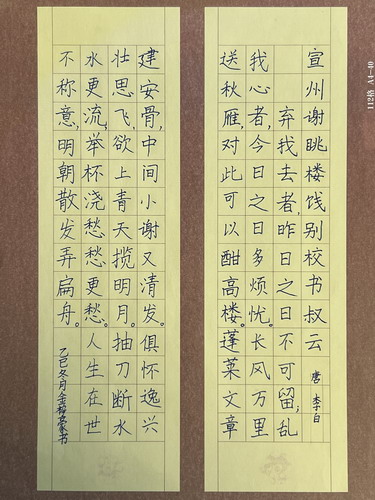 宣州谢眺楼饯别校书叔云
唐 李白
弃我去者,昨日之日不可留,乱
我心者,今日之日多烦忧。长风万里
送秋雁,对此可以酣高楼。蓬莱文章
建安骨,中间小谢又清发。俱怀逸兴
壮思飞,欲上青天揽明月。抽刀断水
水更流,举杯浇愁愁更愁。人生在世
不称意,明朝散发弄扁舟。
乙巳冬月
112格 A4-40